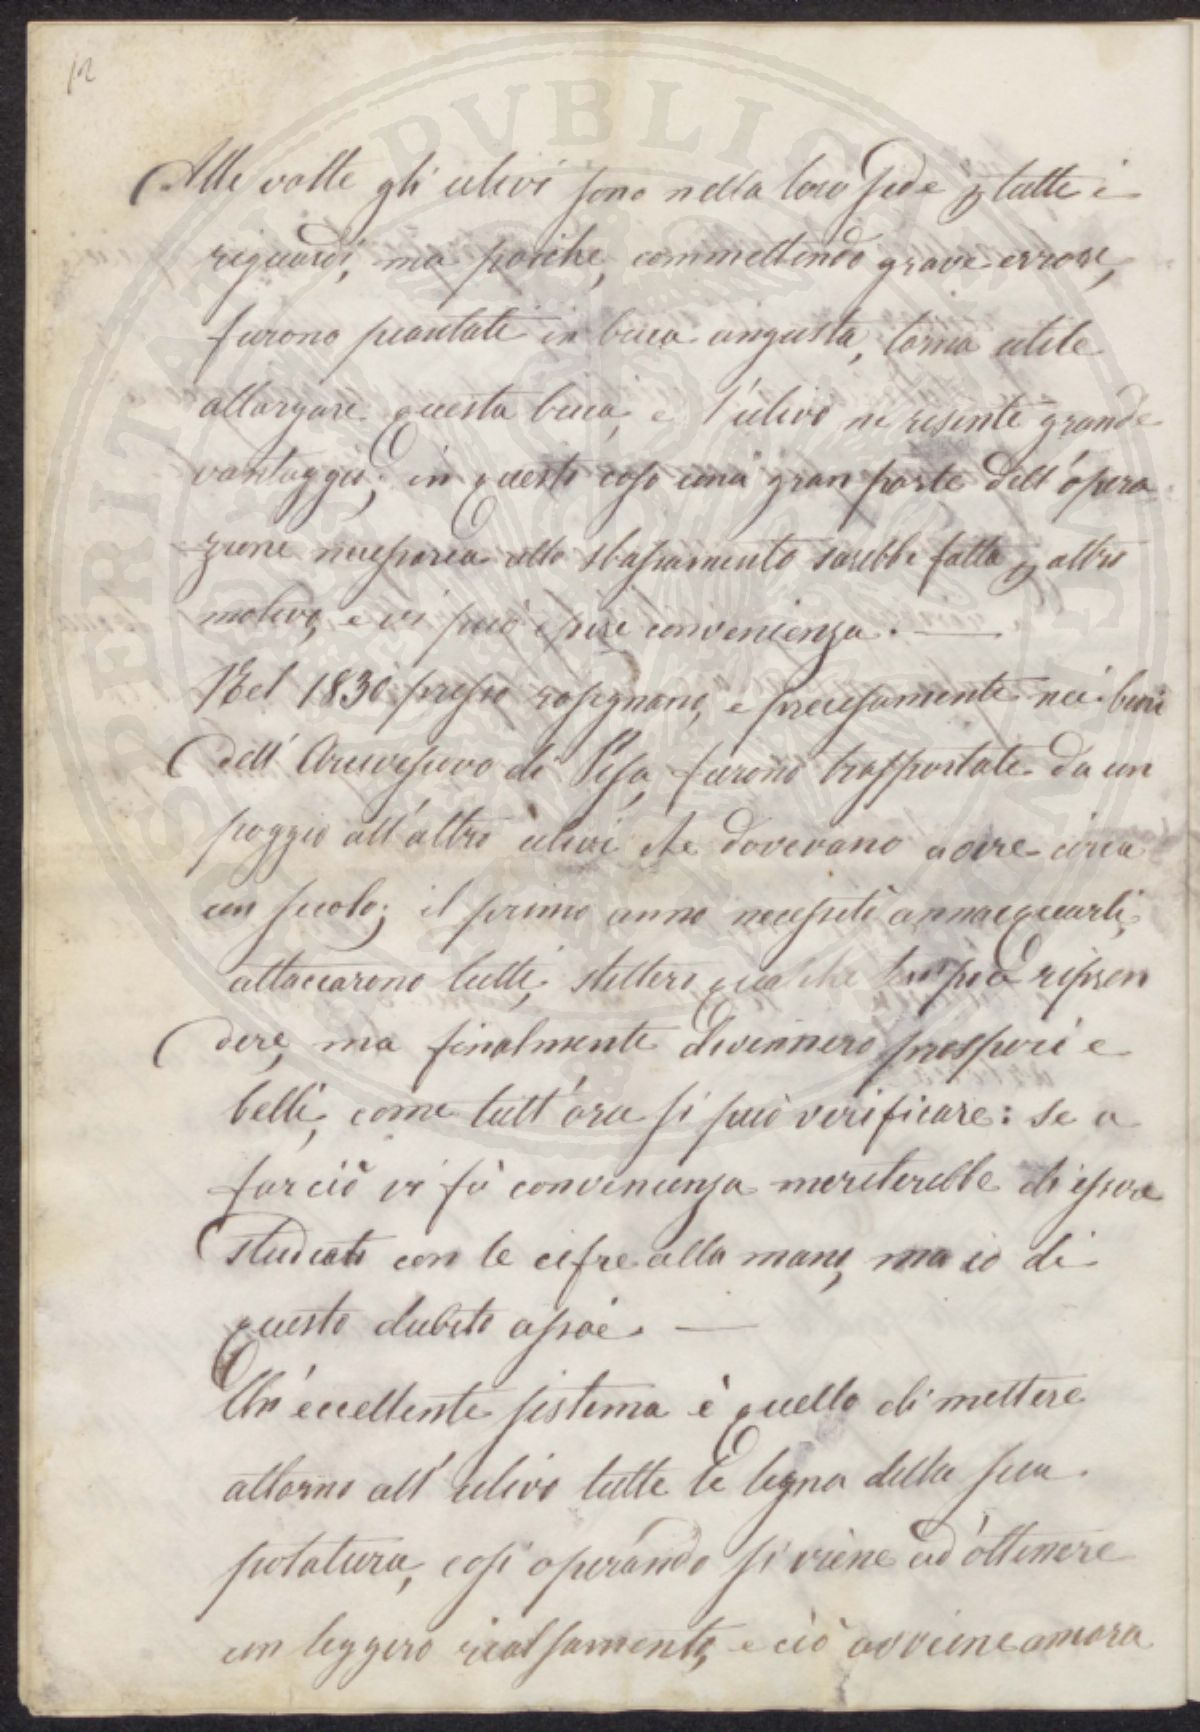 12
Alle volte gli ulivi sono nella loro sede p tutti i
riguardi, ma poiche, commettendo grave errore,
furono piantati in buca angusta, torna utile
allargare questa buca, e l'ulivo ne risente grande
vantaggio; in questo caso una gran parte dell'opera
zione necessaria allo sbassamento sarebbe fatta p altro
motivo, e vi può essere convenienza. —
Nel 1830 presso rosignano, e precisamente nei beni
dell' Arcivescovo di Pisa, furono trasportati da un
poggio all'altro ulivi che dovevano avere circa
un secolo; il primo anno necessitò annacquarli,
attaccarono tutti, stettero qualche a ripren
dere, ma finalmente divennero prosperi e
belli, come tutt'ora si può verificare: se a
far ciò vi fù convenienza meriterebbe di essere
studiato con le cifre alla mano, ma io di
questo dubito assai. —
Un'eccellente sistema è quello di mettere
attorno all'ulivo tutte le legna della sua
potatura, così operando si viene ad ottenere
un leggero rialsamento, e ciò avviene ancora
PERITAT PVBLICAE